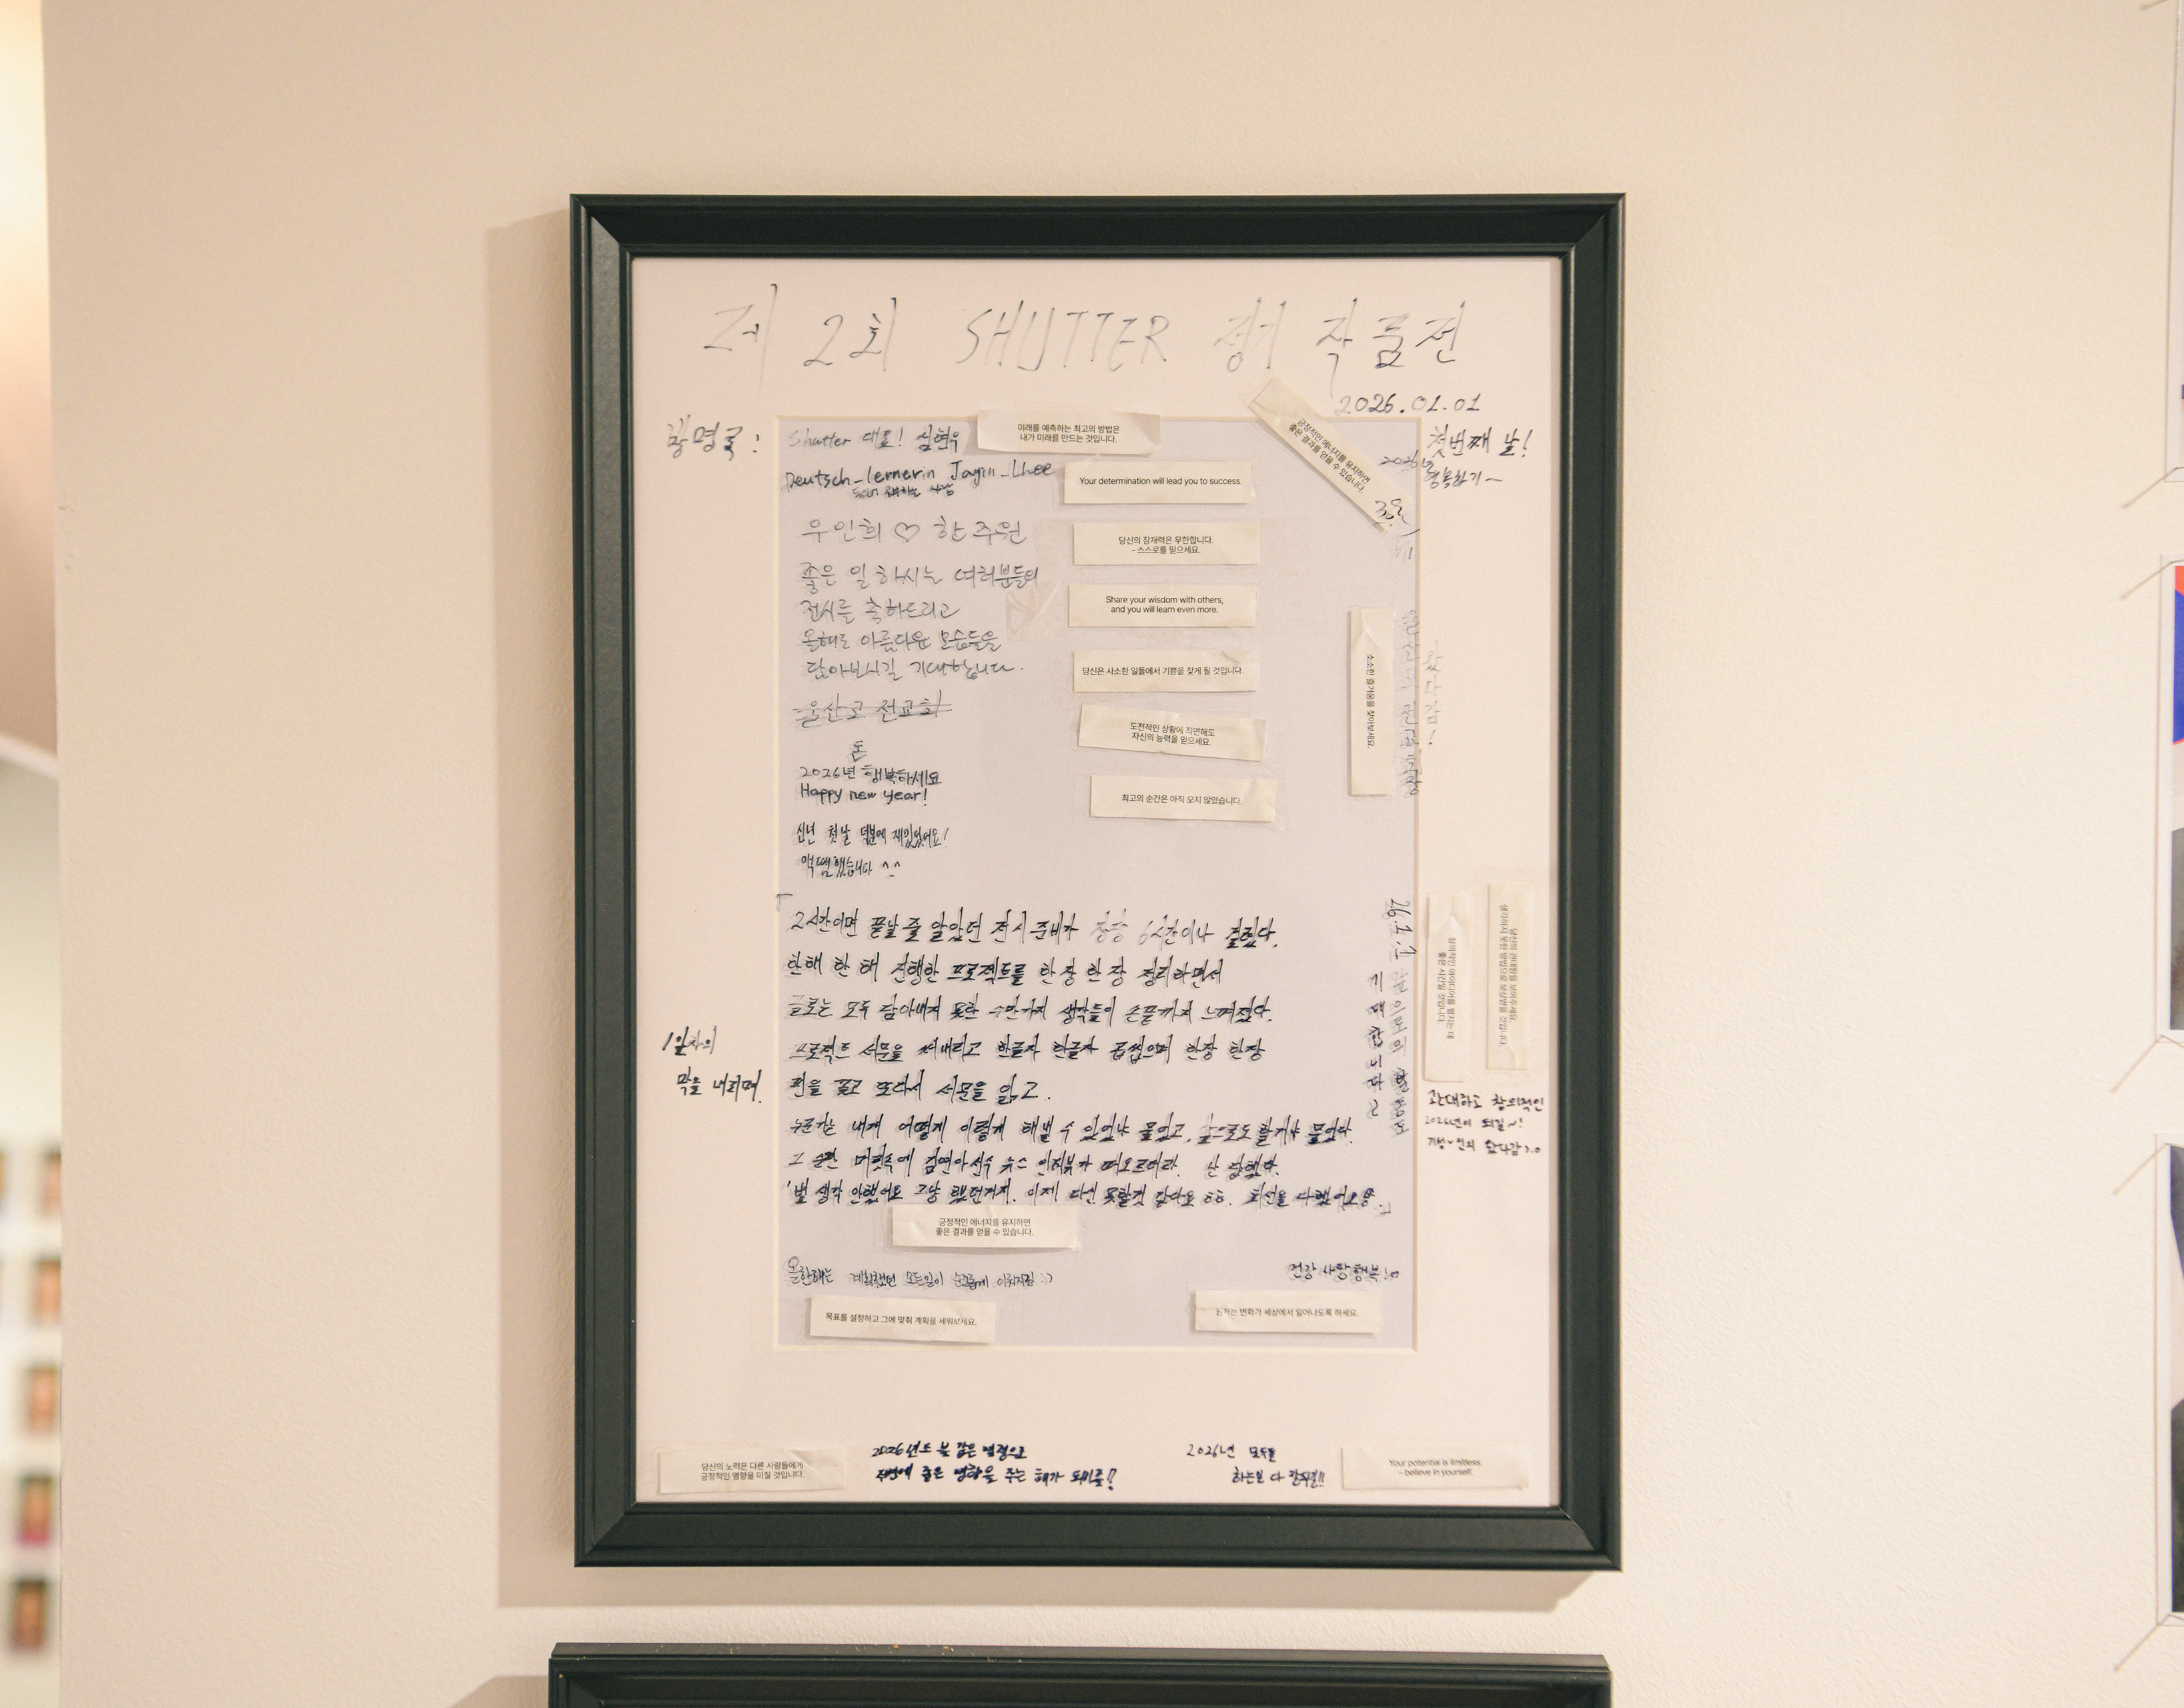 제 2회 SHUTTER 展 작품전
2026.01.01
첫번째 날!
방명록:
Shutter 대표! 심현우
미래를 예측하는 최고의 방법은
내가 미래를 만드는 것입니다.
긍정적인 에너지를 유지하면
좋은 결과를 얻을 수 있습니다.
2026년
행복하기~
Deutsch_lernerin Jayin_Lhee
Your determination will lead you to success.
우인희 ♡ 한주원
당신의 잠재력은 무한합니다.
- 스스로를 믿으세요.
좋은 일 하시는 여러분들의
전시를 축하드리고
올해도 아름다운 모습들을
담아보시길 기대합니다.
Share your wisdom with others,
and you will learn even more.
당신은 사소한 일들에서 기쁨을 찾게 될 것입니다.
소소한 즐거움을 찾아보세요.
울산고 전교회
도전적인 상황에 직면해도
자신의 능력을 믿으세요.
돈
2026년 행복하세요
Happy new year!
최고의 순간은 아직 오지 않았습니다.
신년 첫날 덕분에 재밌었어요!
액땜했습니다 ^^
「2시간이면 끝날 줄 알았던 전시 준비가 장장 6시간이나 걸렸다.
한해 한 해 진행한 프로젝트를 한 장 한 장 정리하면서
글로는 모두 담아내지 못한 수만가지 생각들이 손끝까지 느껴졌다.
프로젝트 서문을 써내리고 한글자 한글자 곱씹으며 한장 한장
핀을 꽂고 또다시 서문을 읽고.
누군가는 내게 어떻게 이렇게 해낼 수 있었냐 물었고, 앞으로도 할거냐 물었다.
그 순간 머릿속에 김연아선수 뉴스 인터뷰가 떠오르더라. 난 답했다.
'별 생각 안했어요 그냥 했던거지. 이제 다신 못할것 같아요 ㅎㅎ. 최선을 다했어요.」
1일차의
막을 내리며.
26.1.1
기대합니다
창의적인 아이디어를 펼치는 데
좋은 시간일 것입니다.
당신의 관대함을 보여주세요.
생각하지 못한 방법으로 보상받을 것입니다.
관대하고 창의적인
2026년이 되길~!
긍정적인 에너지를 유지하면
좋은 결과를 얻을 수 있습니다.
올한해는 계획했던 모든일이 순조롭게 이뤄지길 :)
건강 사랑 행복!
목표를 설정하고 그에 맞춰 계획을 세워보세요.
원하는 변화가 세상에서 일어나도록 하세요.
당신의 노력은 다른 사람들에게
긍정적인 영향을 미칠 것입니다.
2026년도 불 같은 열정으로
주변에 좋은 영향을 주는 해가 되기를!
2026년 모두들
하는일 다 잘되길!!
Your potential is limitless.
– believe in yourself.